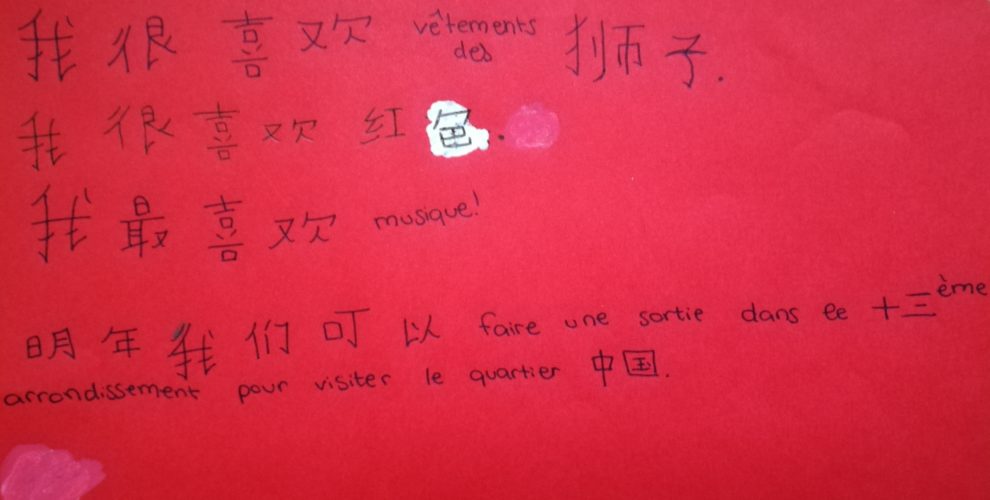 我很喜欢 vêtements des 狮子.
我很喜欢红色.
我最喜欢 musique!
明年我们可以 faire une sortie dans le 十三ème
arrondissement pour visiter le quartier 中国.